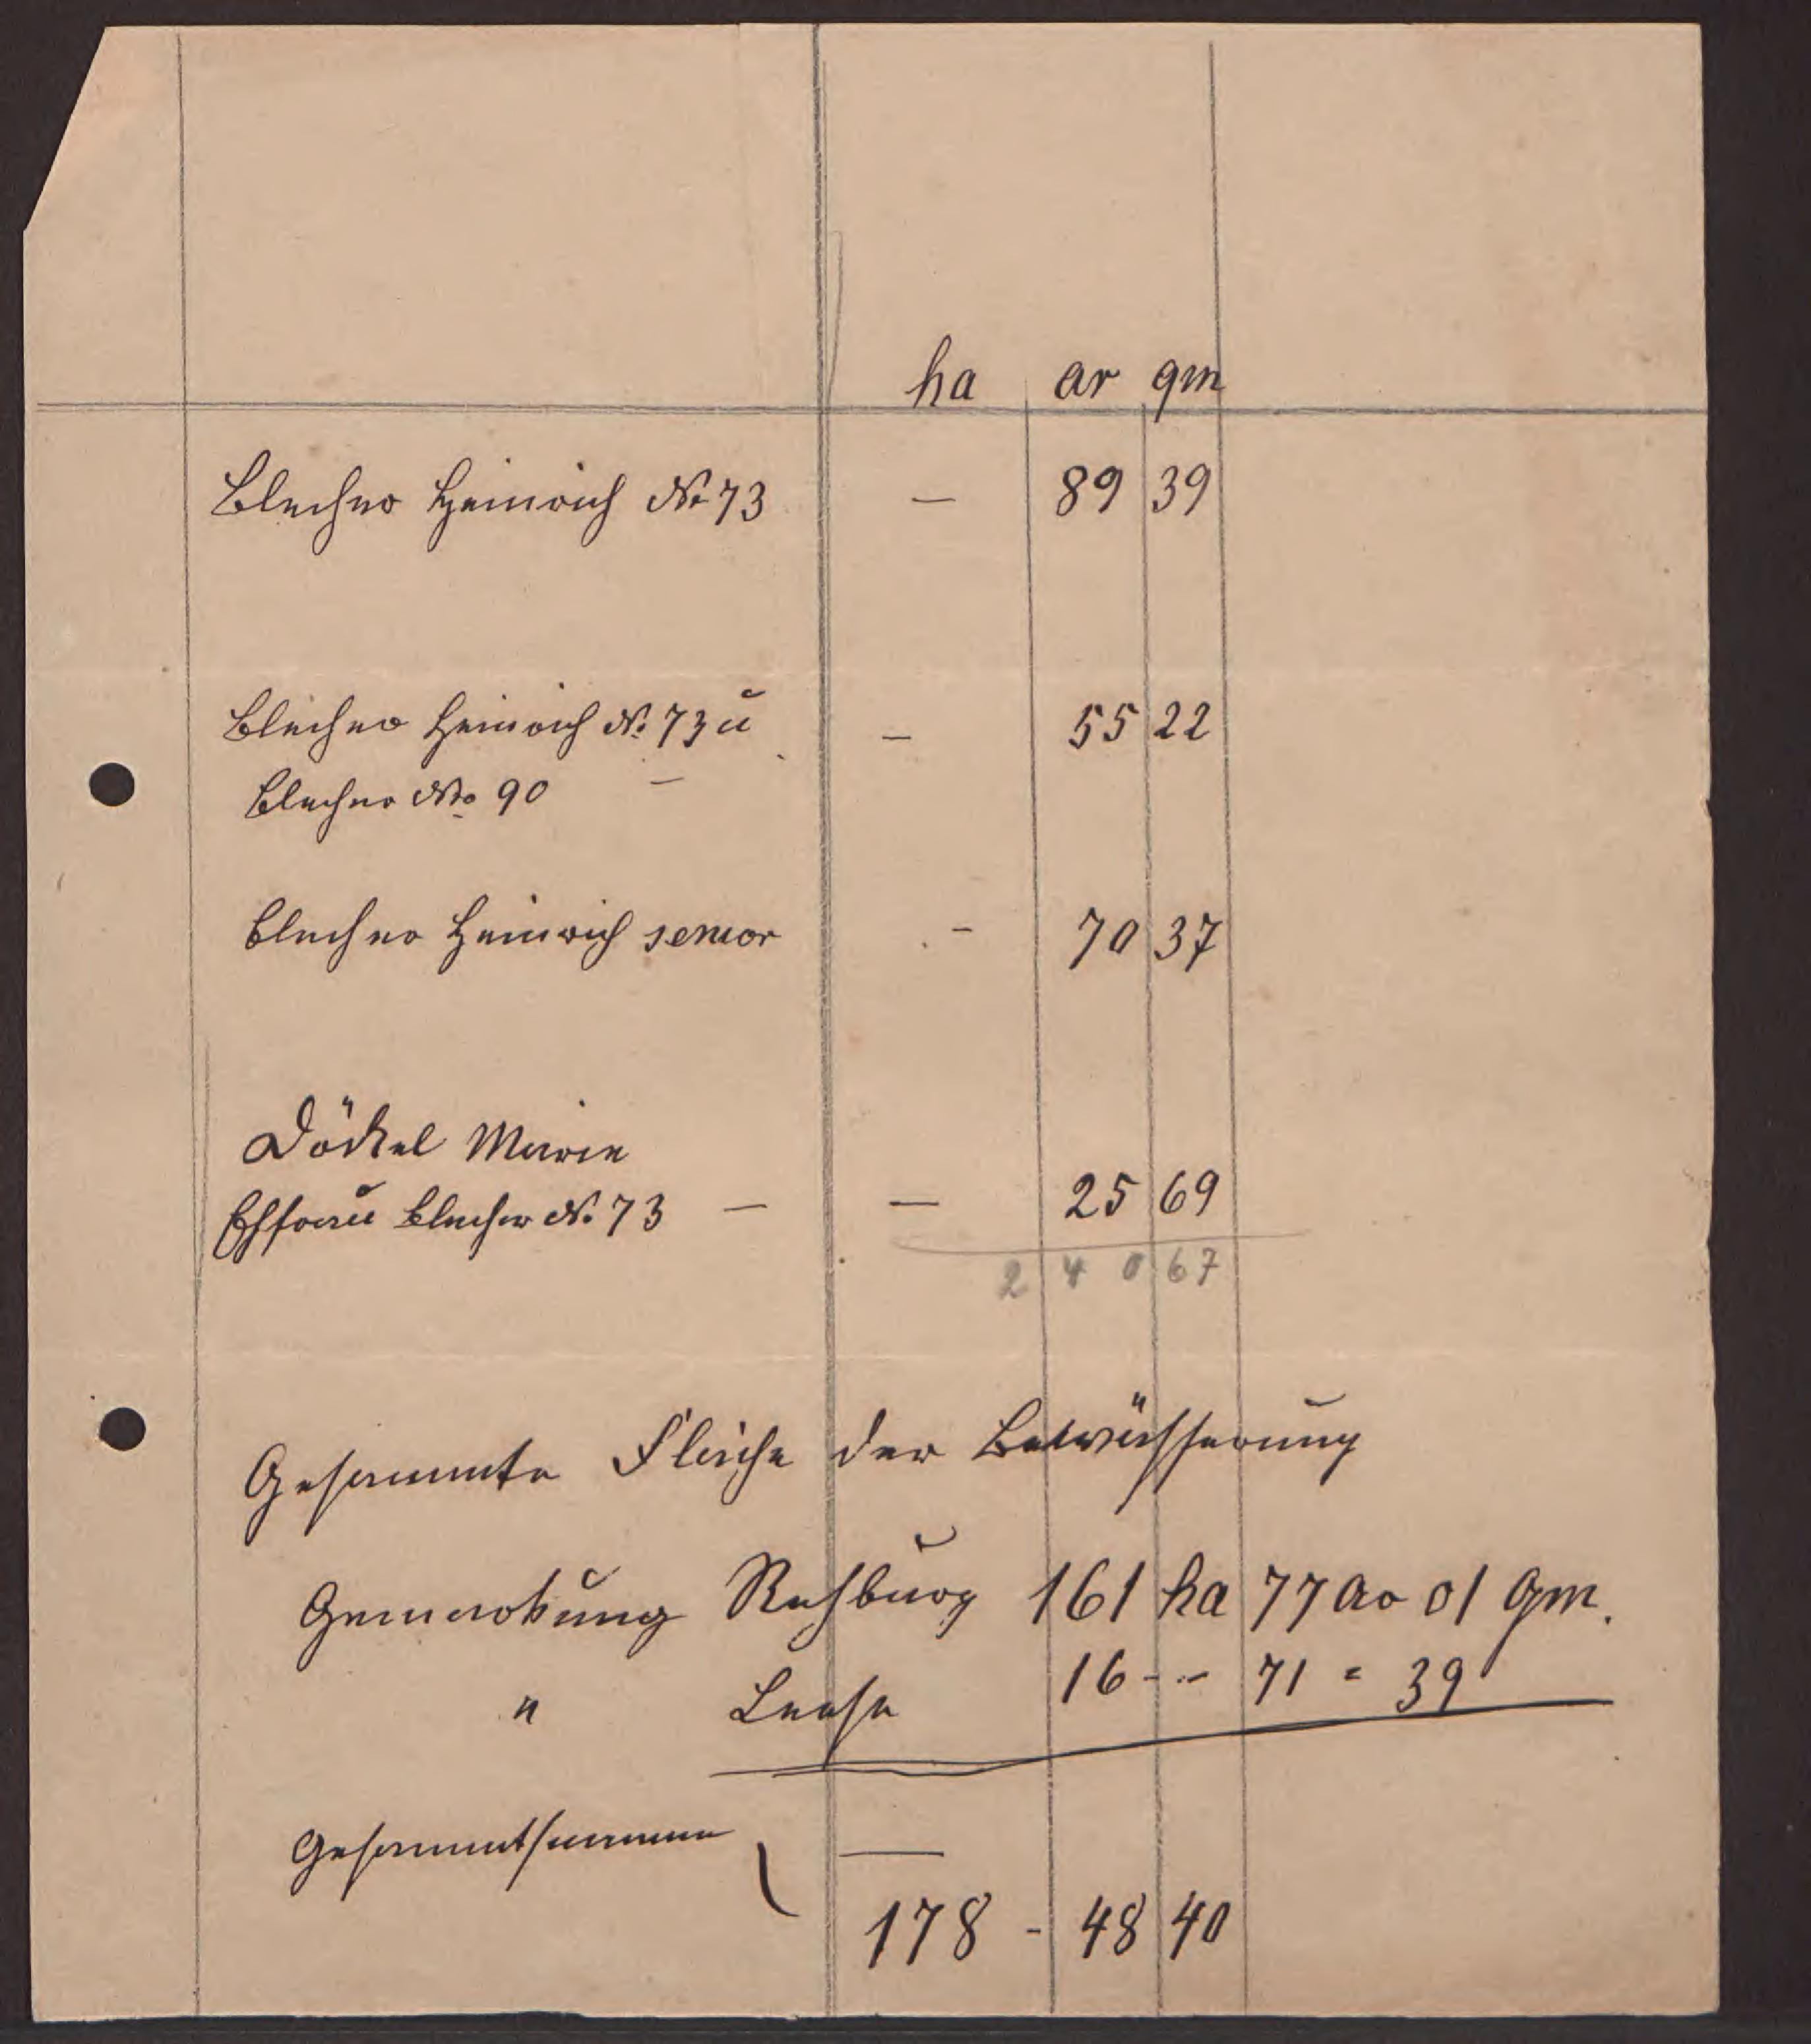 ha ar qm
Blecher Heinrich No 73 — 89 39
Blecher Heinrich No. 73 u — 55 22
Blecher No. 90 —
Blecher Heinrich senior - 70 37
Döckel Marie
Ehfrau Blecher No. 73 — — 25 69
2 4 0 67
Gesammte Fläche der Bewässerung
Gemarkung Rehburg 161 ha 77 ar 01 qm.
" Leese 16 - - 71 = 39
Gesammtsumme —
178 - 48 40